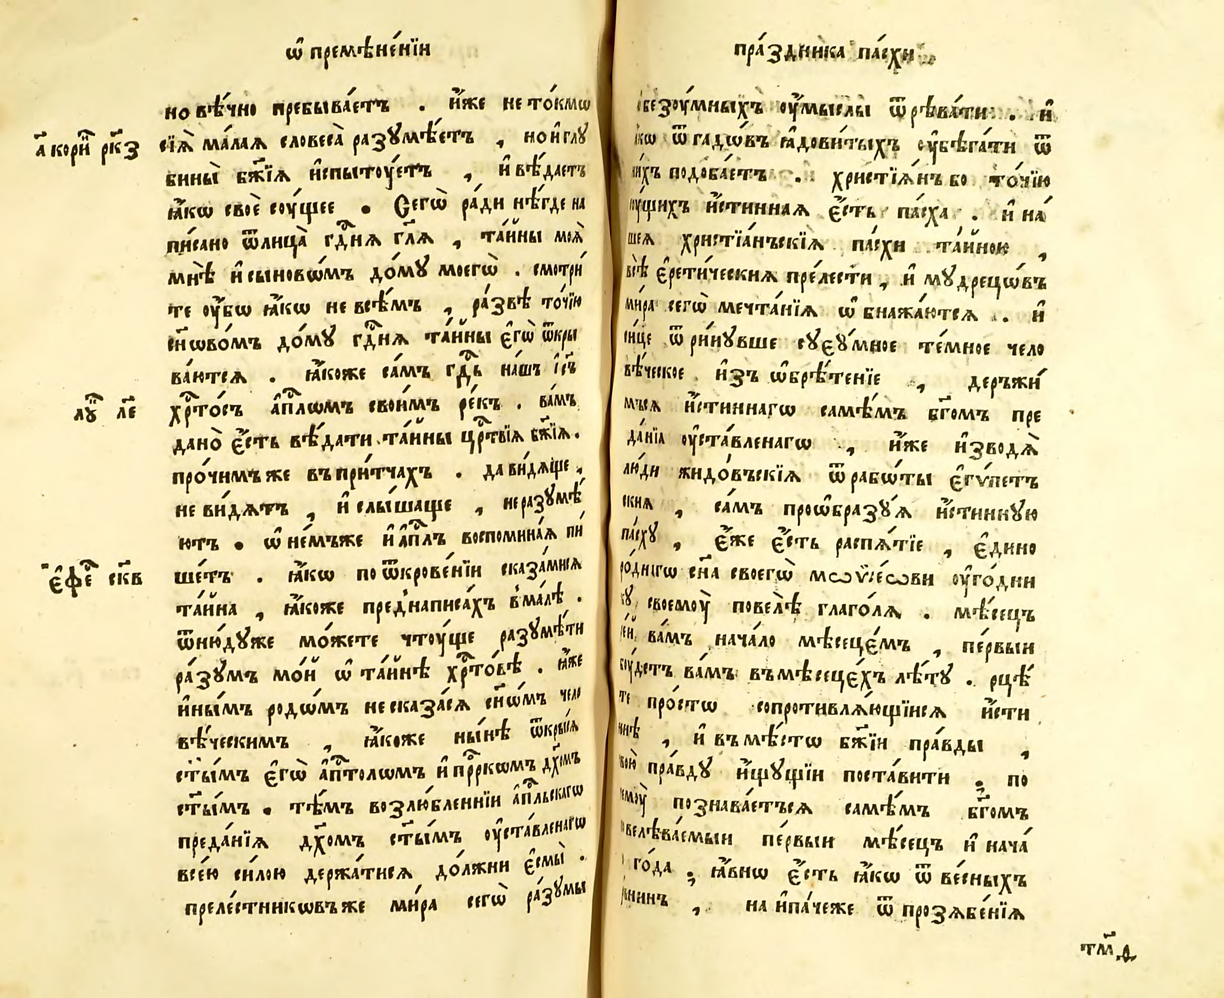 ѡ҆ премѣне́нїи
но вѣ́чно пребыва́етъ . и҆́же не то́кмѡ
а҃ кори҇ⷩ ркз
сїѧ̀ ма́лаѧ словеса̀ разумѣ́етъ , но и҆ глꙋ
бины̀ бж҃їѧ и҆спытоу́етъ , и҆ вѣ́даетъ
ꙗ҆́кѡ своѐ соу́щее . Сегѡ̀ ра́ди нѣ́где на
пи́сано ѿ лица̀ гдⷭ҇нѧ гл҃ѧ , та́йны моѧ̀
мнѣ̀ и҆ сыновѡ́мъ до́мꙋ моегѡ̀ . смотри́
те оу҆́бѡ ꙗ҆́кѡ не всѣ́мъ , ра́звѣ то́чїю
сн҃ѡвѡ́мъ до́мꙋ гдⷭ҇нѧ та́йны є҆гѡ̀ ѿкры
ва́ютсѧ . ꙗ҆́коже са́мъ гдⷭ҇ь на́шъ і҆с҃ъ
лꙋ҇ⷦ ле
хрⷭ҇то́съ а҆пⷭ҇лѡмъ свои́мъ ре́къ . ва́мъ
дано̀ є҆́сть вѣ́дати та́йны црⷭ҇твїѧ бж҃їѧ .
про́чимъ же въ при́тчахъ . да ви́дѧще ,
не ви́дѧтъ , и҆ слы́шаще , не разꙋмѣ́
ютъ . ѡ҆ не́мъже и҆ а҆пⷭ҇лъ воспомина́ѧ пи́
є҆фе҇ⷭ скв
шетъ . ꙗ҆́кѡ по ѿкрове́нїи сказа́мисѧ
та́йна , ꙗ҆́коже преднаписа́хъ вма́лѣ .
ѿню́дꙋже мо́жете чтоу́ще разꙋмѣ́ти
ра́зꙋмъ мо́й ѡ҆ та́йнѣ хрⷭ҇то́вѣ . ꙗ҆́же
и҆ны́мъ родѡ́мъ не сказа́сѧ сн҃ѡ́мъ чело
вѣ́ческимъ , ꙗ҆́коже ны́нѣ ѿкры́сѧ
ст҃ы́мъ є҆гѡ̀ а҆пⷭ҇толѡмъ и҆ прⷪ҇ркѡмъ дх҃омъ
ст҃ы́мъ . тѣ́мъ возлю́бленнїи а҆пⷭ҇льскагѡ
преда́нїѧ дх҃омъ ст҃ы́мъ оу҆ста́вленагѡ
все́ю си́лою держа́тисѧ до́лжни є҆смы̀ .
преле́стникѡвъже ми́ра сегѡ̀ ра́зꙋмы
пра́здника па́схи
безоу́мныхъ оу҆́мыслы ѿрѣва́ти . и҆
ѿ га́дѡвъ ꙗ҆дови́тыхъ оу҆бѣга́ти ѿ
подоба́етъ . христїѧ́нъ бо то́чїю
и҆́стиннаѧ є҆́сть па́сха . и҆ на́
шеѧ христїа́нъскїѧ па́схи та́йною ,
всѣ̀ є҆рети́ческиѧ пре́лести , и҆ мꙋдрецѡ́въ
ми́ра сегѡ̀ мечта́нїѧ ѡ҆бнажа́ютсѧ . и҆
си́це ѿри́нꙋвше сꙋеꙋ́мное те́мное чело
вѣ́ческое и҆зъѡбрѣ́тенїе , держи́
мъсѧ и҆́стиннагѡ самѣ́мъ бг҃омъ пре
да́нїа оу҆ста́вленагѡ , и҆́же и҆зводѧ̀
лю́ди жидо́въскїѧ ѿ рабѡ́ты є҆гѵ́петъ
скиѧ , са́мъ проѡбразꙋ́ѧ и҆́стиннꙋю
па́схꙋ , є҆́же є҆́сть распѧ́тїе , є҆дино
ро́днагѡ сн҃а своегѡ̀ мѡѷсе́ѡви оу҆го́дни
кꙋ̀ своемоу̀ повелѣ̀ глаго́лѧ . мѣ́сецъ
се́й ва́мъ нача́ло мѣсеце́мъ , пе́рвыи
боу́детъ ва́мъ въ мѣсеце́хъ лѣ́тꙋ . рцѣ́
те про́стѡ сопротивлѧ́ющїисѧ и҆́сти
ннѣ , и҆ въ мѣ́стѡ бж҃їи пра́вды ,
свою̀ пра́вдꙋ и҆́щꙋщїи поста́вити . по
чемоу̀ познава́етъсѧ самѣ́мъ бг҃омъ
повелѣва́емыи пе́рвыи мѣ́сецъ и҆ нача́
го́да ; ꙗ҆́внѡ є҆́сть ꙗ҆́кѡ ѿ ве́сныхъ
, на и҆па́чеже ѿ прозѧбе́нїѧ